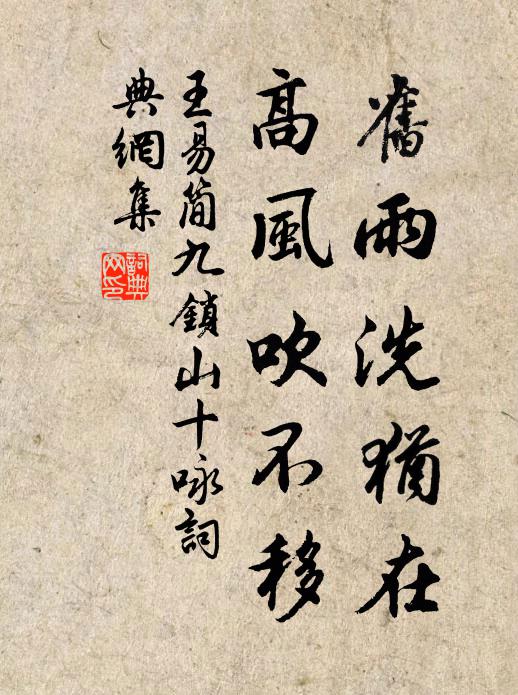 舊雨洗猶在
高風吹不移
王易簡九鎖山十咏詞
典網集
詞典网印